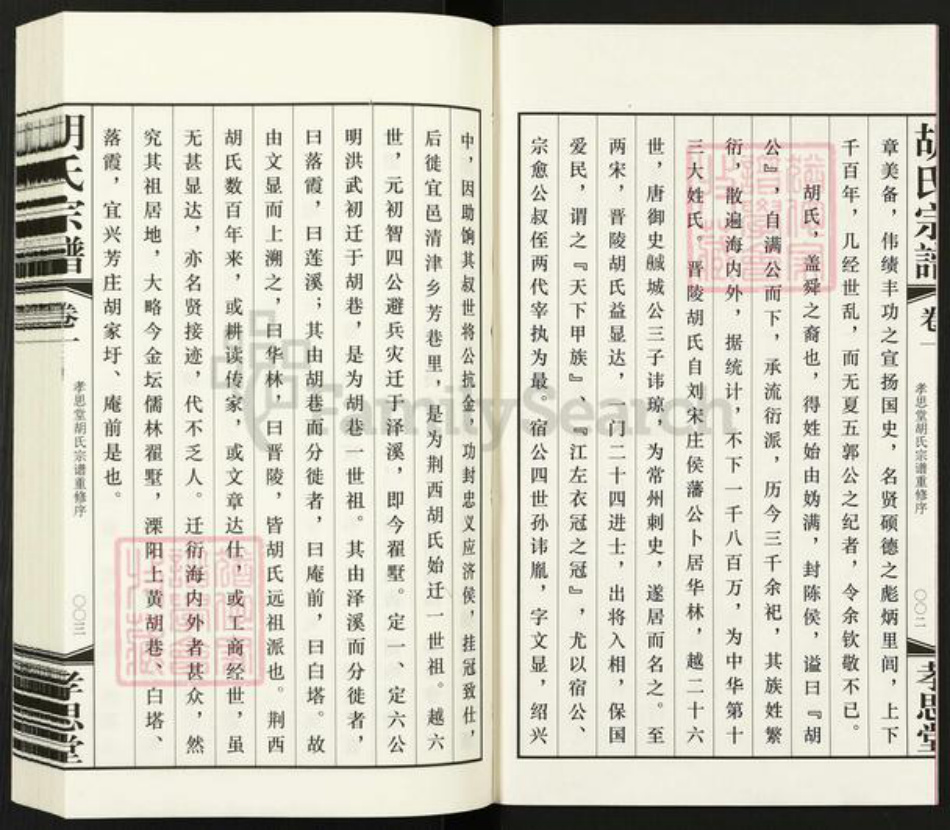 胡氏宗谱
卷一
孝思堂胡氏宗谱重修序
〇〇二
孝思堂
章美备，伟绩丰功之宣扬国史，名贤硕德之彪炳里闾，上下
千百年，几经世乱，而无夏五郭公之纪者，令余钦敬不已。
胡氏，盖舜之裔也，得姓始由妫满，封陈侯，谥曰『胡
公』，自满公而下，承流衍派，历今三千余祀，其族姓繁
衍，散遍海内外，据统计，不下一千八百万，为中华第十
三大姓氏。晋陵胡氏自刘宋庄侯藩公卜居华林，越二十六
世，唐御史觨城公三子讳琼，为常州刺史，遂居而名之。至
两宋，晋陵胡氏益显达，一门二十四进士，出将入相，保国
爱民，谓之『天下甲族』、『江左衣冠之冠』，尤以宿公、
宗愈公叔侄两代宰执为最。宿公四世孙讳胤，字文显，绍兴
中，因助饷其叔世将公抗金，功封忠义应济侯，挂冠致仕，
后徙宜邑清津乡芳巷里，是为荆西胡氏始迁一世祖。越六
世，元初智四公避兵灾迁于泽溪，即今翟墅。定一、定六公
明洪武初迁于胡巷，是为胡巷一世祖。其由泽溪而分徙者，
曰落霞，曰莲溪；其由胡巷而分徙者，曰庵前，曰白塔。故
由文显而上溯之，曰华林，曰晋陵，皆胡氏远祖派也。荆西
胡氏数百年来，或耕读传家，或文章达仕，或工商经世，虽
无甚显达，亦名贤接迹，代不乏人。迁衍海内外者甚众，然
究其祖居地，大略今金坛儒林翟墅，溧阳上黄胡巷、白塔、
落霞，宜兴芳庄胡家圩、庵前是也。
胡氏宗谱
卷一
孝思堂胡氏宗谱重修序
〇〇三
孝思堂
FamilySearch